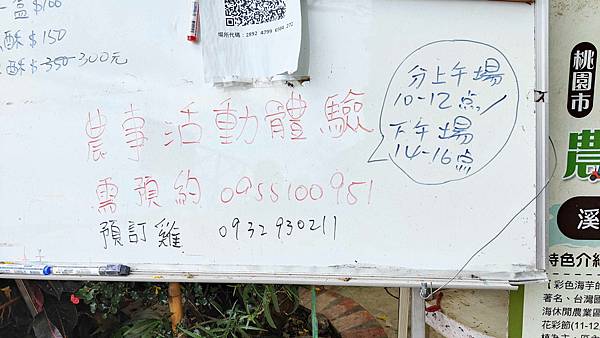 一盒 $100
酥 $150
酥 $ 350 300元
場所代碼：2892 4799 6984 272
分上午場
10-12点/
下午場
14-16点
農事活動體驗
需預約 0955100951
預訂雞 0932930211
桃園市
農
溪
特色介紹
彩色海芋的
著名、台灣國
海休閒農業區
花彩節(11-12